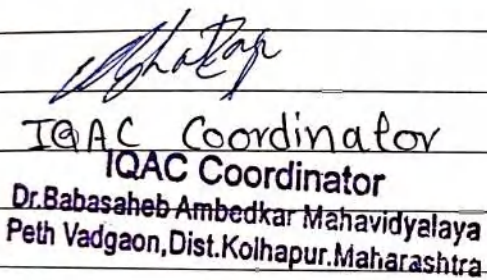 IQAC Coordinator
IQAC Coordinator
Dr.Babasaheb Ambedkar Mahavidyalaya
Peth Vadgaon,Dist.Kolhapur.Maharashtra